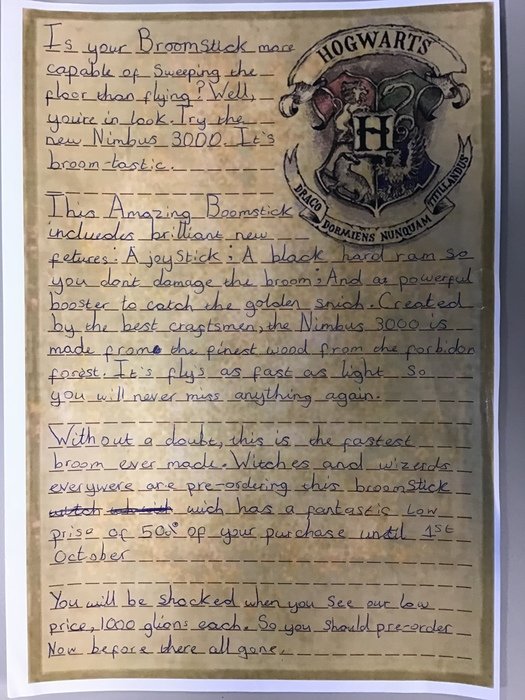 Is your Broomstick more
HOGWARTS
capable of sweeping the
floor than flying? Well,
you're in look. Try the
new Nimbus 3000. It's
broom-tastic.
H
DRACO DORMIENS NUNQUAM TITILLANDUS
This Amazing Boomstick
incluedes brilliant new
fetures: A joy stick; A black hard ram so
you don't damage the broom; And a powerful
booster to catch the golden snich. Created
by the best craftsmen, the Nimbus 3000 is
made from the finest wood from the forbidon
forest. It's fly's as fast as light so
you will never miss anything again.
Without a doubt, this is the fastest
broom ever made. Witches and wizerds
everywere are pre-ordering this broomstick
wich has a fantastic low
prise of 50% of your purchase until 1st
October
You will be shocked when you see our low
price, 1000 glions each. So you should pre-order
Now before there all gone.